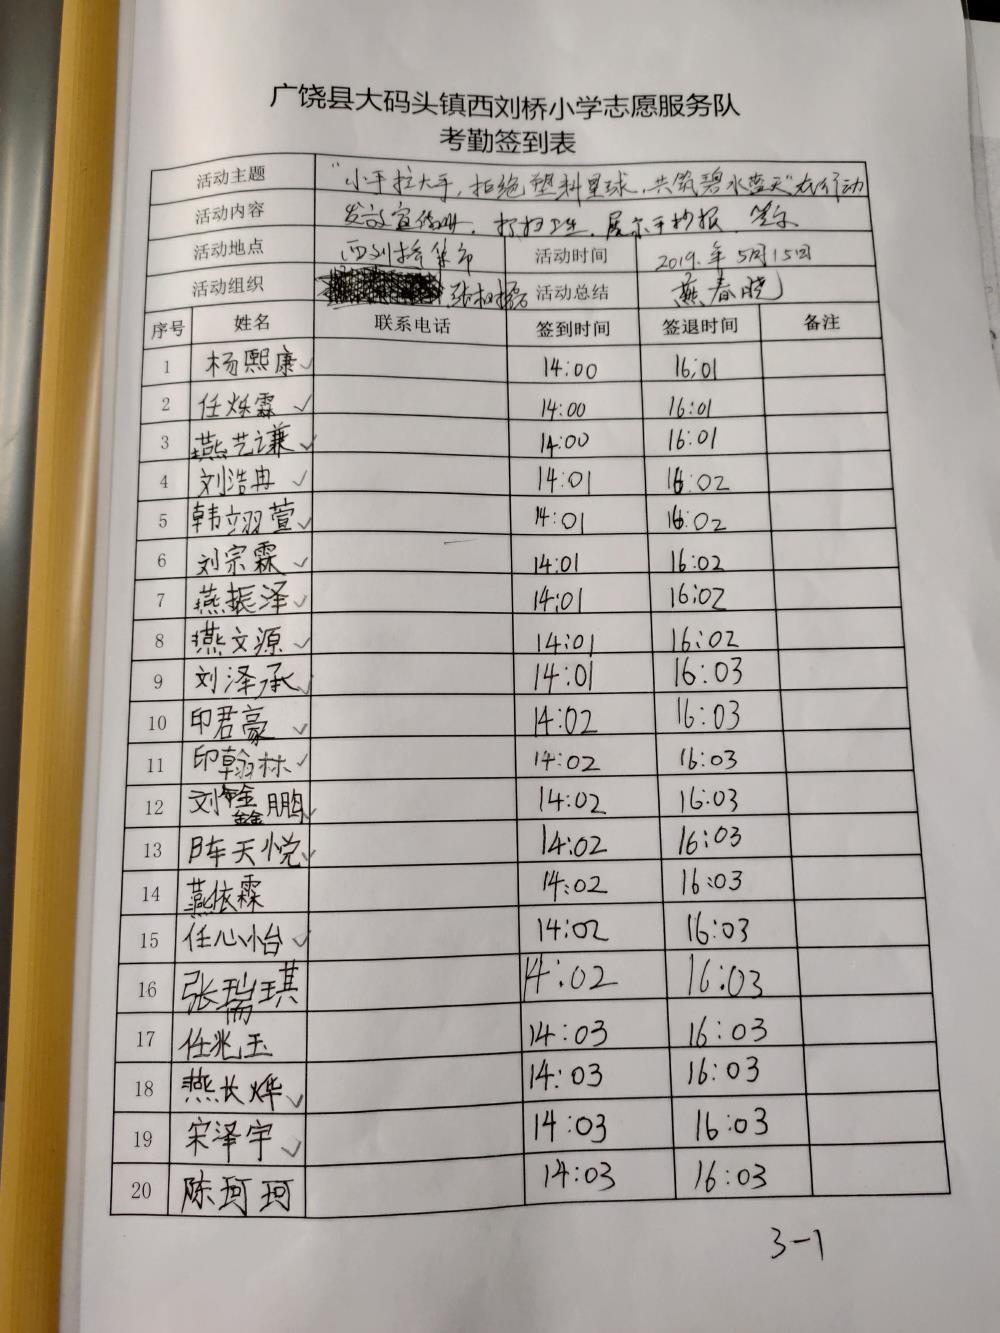 广饶县大码头镇西刘桥小学志愿服务队
考勤签到表
活动主题 "小手拉大手，拒绝塑料星球，共筑碧水蓝天"在行动
活动内容 发放宣传册，打扫卫生，展示手抄报，签名
活动地点 西刘桥集市 活动时间 2019.年5月15日
活动组织 活动总结 燕春晓
序号 姓名 联系电话 签到时间 签退时间 备注
1 杨熙康✓ 14:00 16:01
2 任烁霖✓ 14:00 16:01
3 燕艺谦✓ 14:00 16:01
4 刘浩冉✓ 14:01 16:02
5 韩翊萱✓ 14:01 16:02
6 刘宗霖✓ 14:01 16:02
7 燕振泽✓ 14:01 16:02
8 燕文源✓ 14:01 16:02
9 刘泽承✓ 14:01 16:03
10 印君豪✓ 14:02 16:03
11 印翰林✓ 14:02 16:03
12 刘鑫鹏✓ 14:02 16:03
13 陈天悦✓ 14:02 16:03
14 燕依霖 14:02 16:03
15 任心怡✓ 14:02 16:03
16 张瑞琪 14:02 16:03
17 任兆玉 14:03 16:03
18 燕长烨✓ 14:03 16:03
19 宋泽宇✓ 14:03 16:03
20 陈珂珂 14:03 16:03
3-1